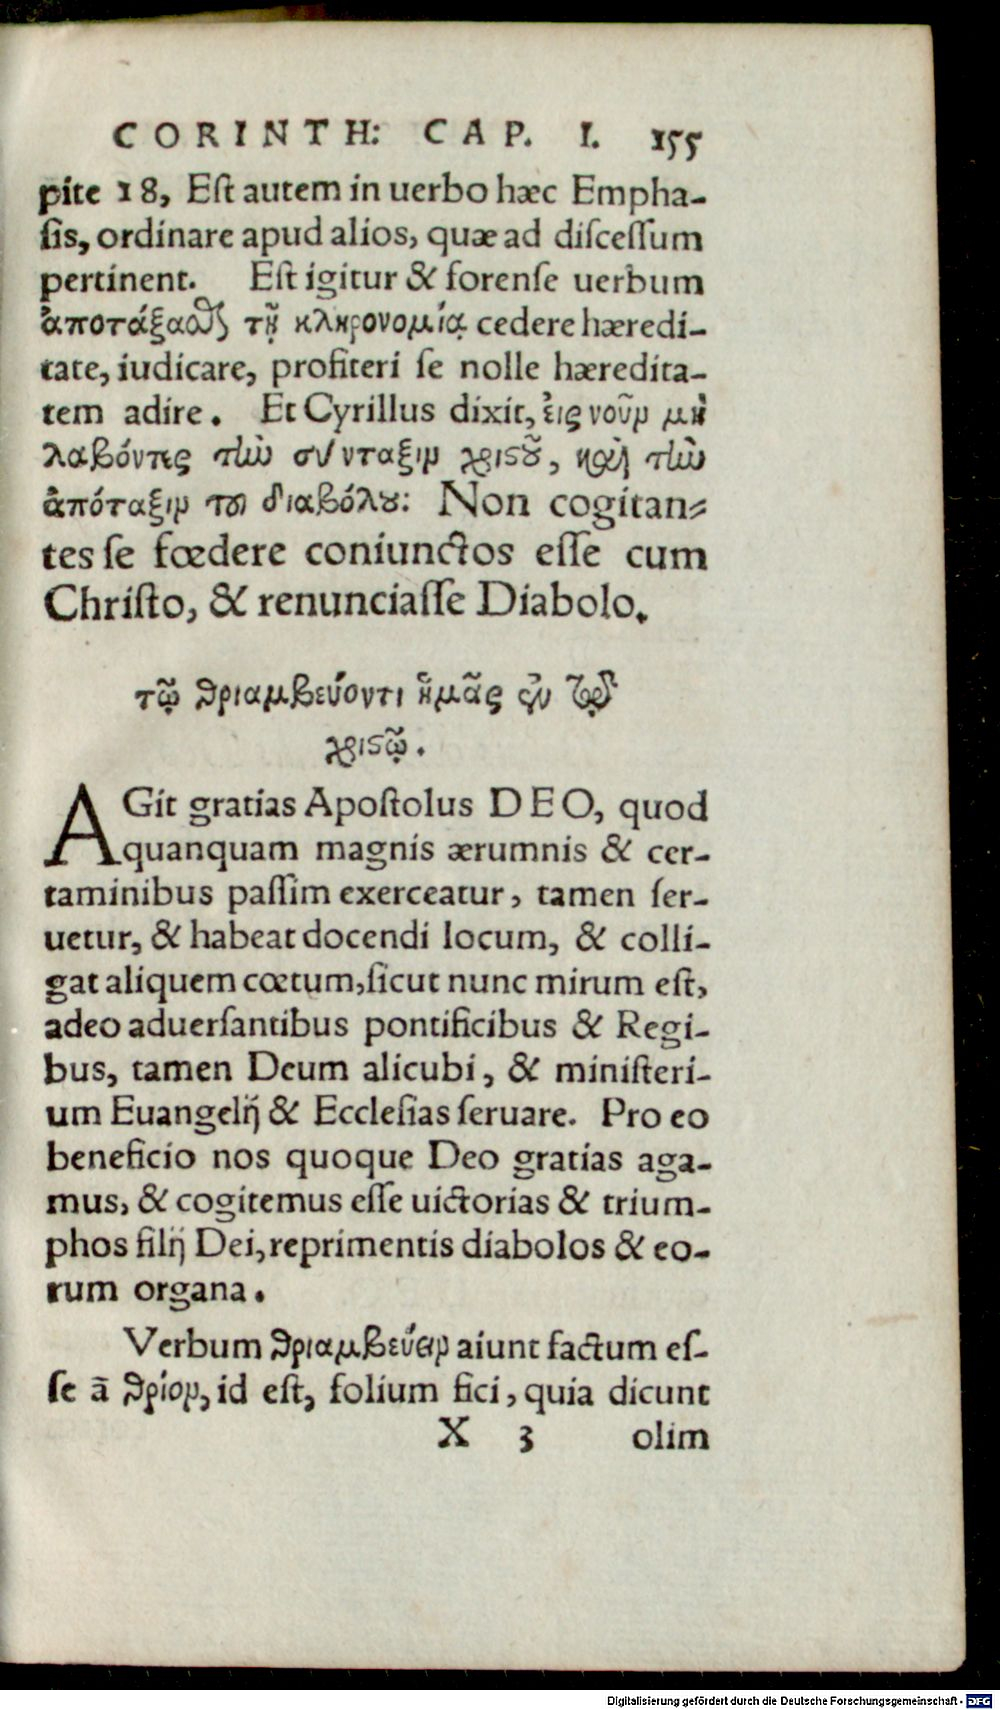 CORINTH: CAP. I. 155
pite 18, Est autem in uerbo hæc Empha-
sis, ordinare apud alios, quæ ad discessum
pertinent. Est igitur & forense uerbum
ἀποτάξασθαι τῇ κληρονομίᾳ cedere hæredi-
tate, iudicare, profiteri se nolle hæredita-
tem adire. Et Cyrillus dixit, εἰς νοῦν μὴ
λαβόντες τὴν σύνταξιν χριστοῦ, καὶ τὴν
ἀπόταξιν τοῦ διαβόλου: Non cogitan-
tes se fœdere coniunctos esse cum
Christo, & renunciasse Diabolo.
τῷ θριαμβεύοντι ἡμᾶς ἐν τῷ
χριστῷ.
AGit gratias Apostolus DEO, quod
quanquam magnis ærumnis & cer-
taminibus passim exerceatur, tamen ser-
uetur, & habeat docendi locum, & colli-
gat aliquem cœtum, sicut nunc mirum est,
adeo aduersantibus pontificibus & Regi-
bus, tamen Deum alicubi, & ministeri-
um Euangelij & Ecclesias seruare. Pro eo
beneficio nos quoque Deo gratias aga-
mus, & cogitemus esse uictorias & trium-
phos filij Dei, reprimentis diabolos & eo-
rum organa.
Verbum θριαμβεύειν aiunt factum es-
se ā θρίον, id est, folium fici, quia dicunt
X 3 olim
Digitalisierung gefördert durch die Deutsche Forschungsgemeinschaft - DFG